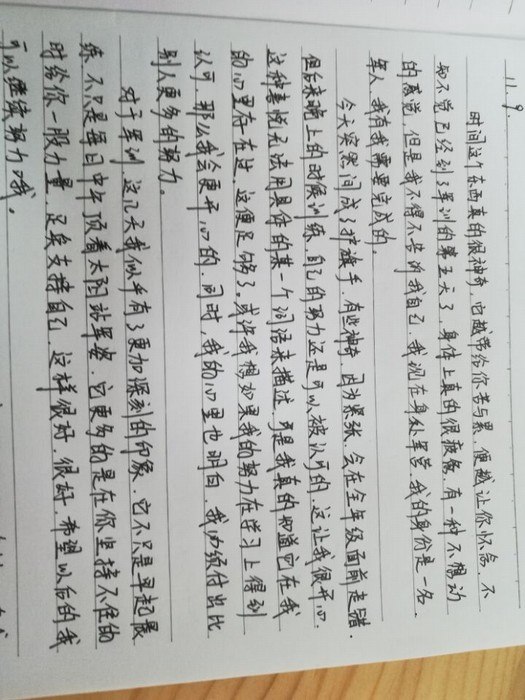 11.9.
时间这个东西真的很神奇，它越带给你苦与累，便越让你怀念，不
知不觉已经到了军训的第五天了，身体上真的很疲倦，有一种不想动
的感觉，但是我不得不告诉我自己，我现在身处军营，我的身份是一名
军人，我有我需要完成的。
今天突然间成了护旗手，有些神奇，因为紧张，会在全年级面前走错，
但后来晚上的时候训练，自己的努力还是可以被认可的，这让我很开心，
这种喜悦无法用具体的某一个词语来描述，可是我真的知道它在我
的心里存在过，这便足够了。或许我想如果我的努力在学习上得到
认可，那么我会更开心的，同时，我的心里也明白，我必须付出比
别人更多的努力。
对于军训，这几天我似乎有了更加深刻的印象，它不只是早起晨
练，不只是每日中午顶着太阳站军姿，它更多的是在你坚持不住的
时给你一股力量，足矣支撑自己，这样很好，很好，希望以后的我
可以继续努力哦。